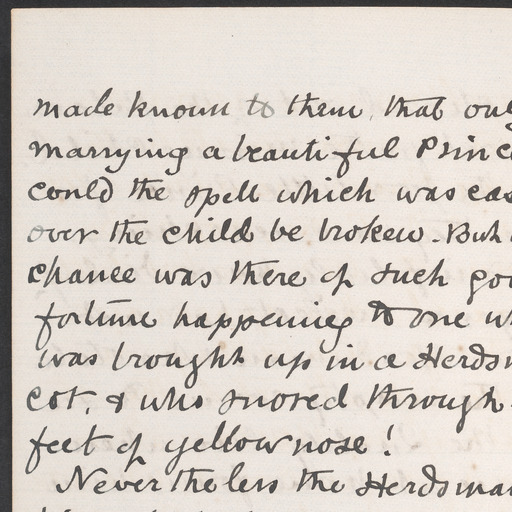 made known to them, that only
marrying a beautiful Princ
could the spell which was cas
over the child be broken. But
chance was there of such goo
fortune happening to one wh
was brought up in a Herdsm
cot, & who snored through
feet of yellow nose!
Nevertheless the Herdsman